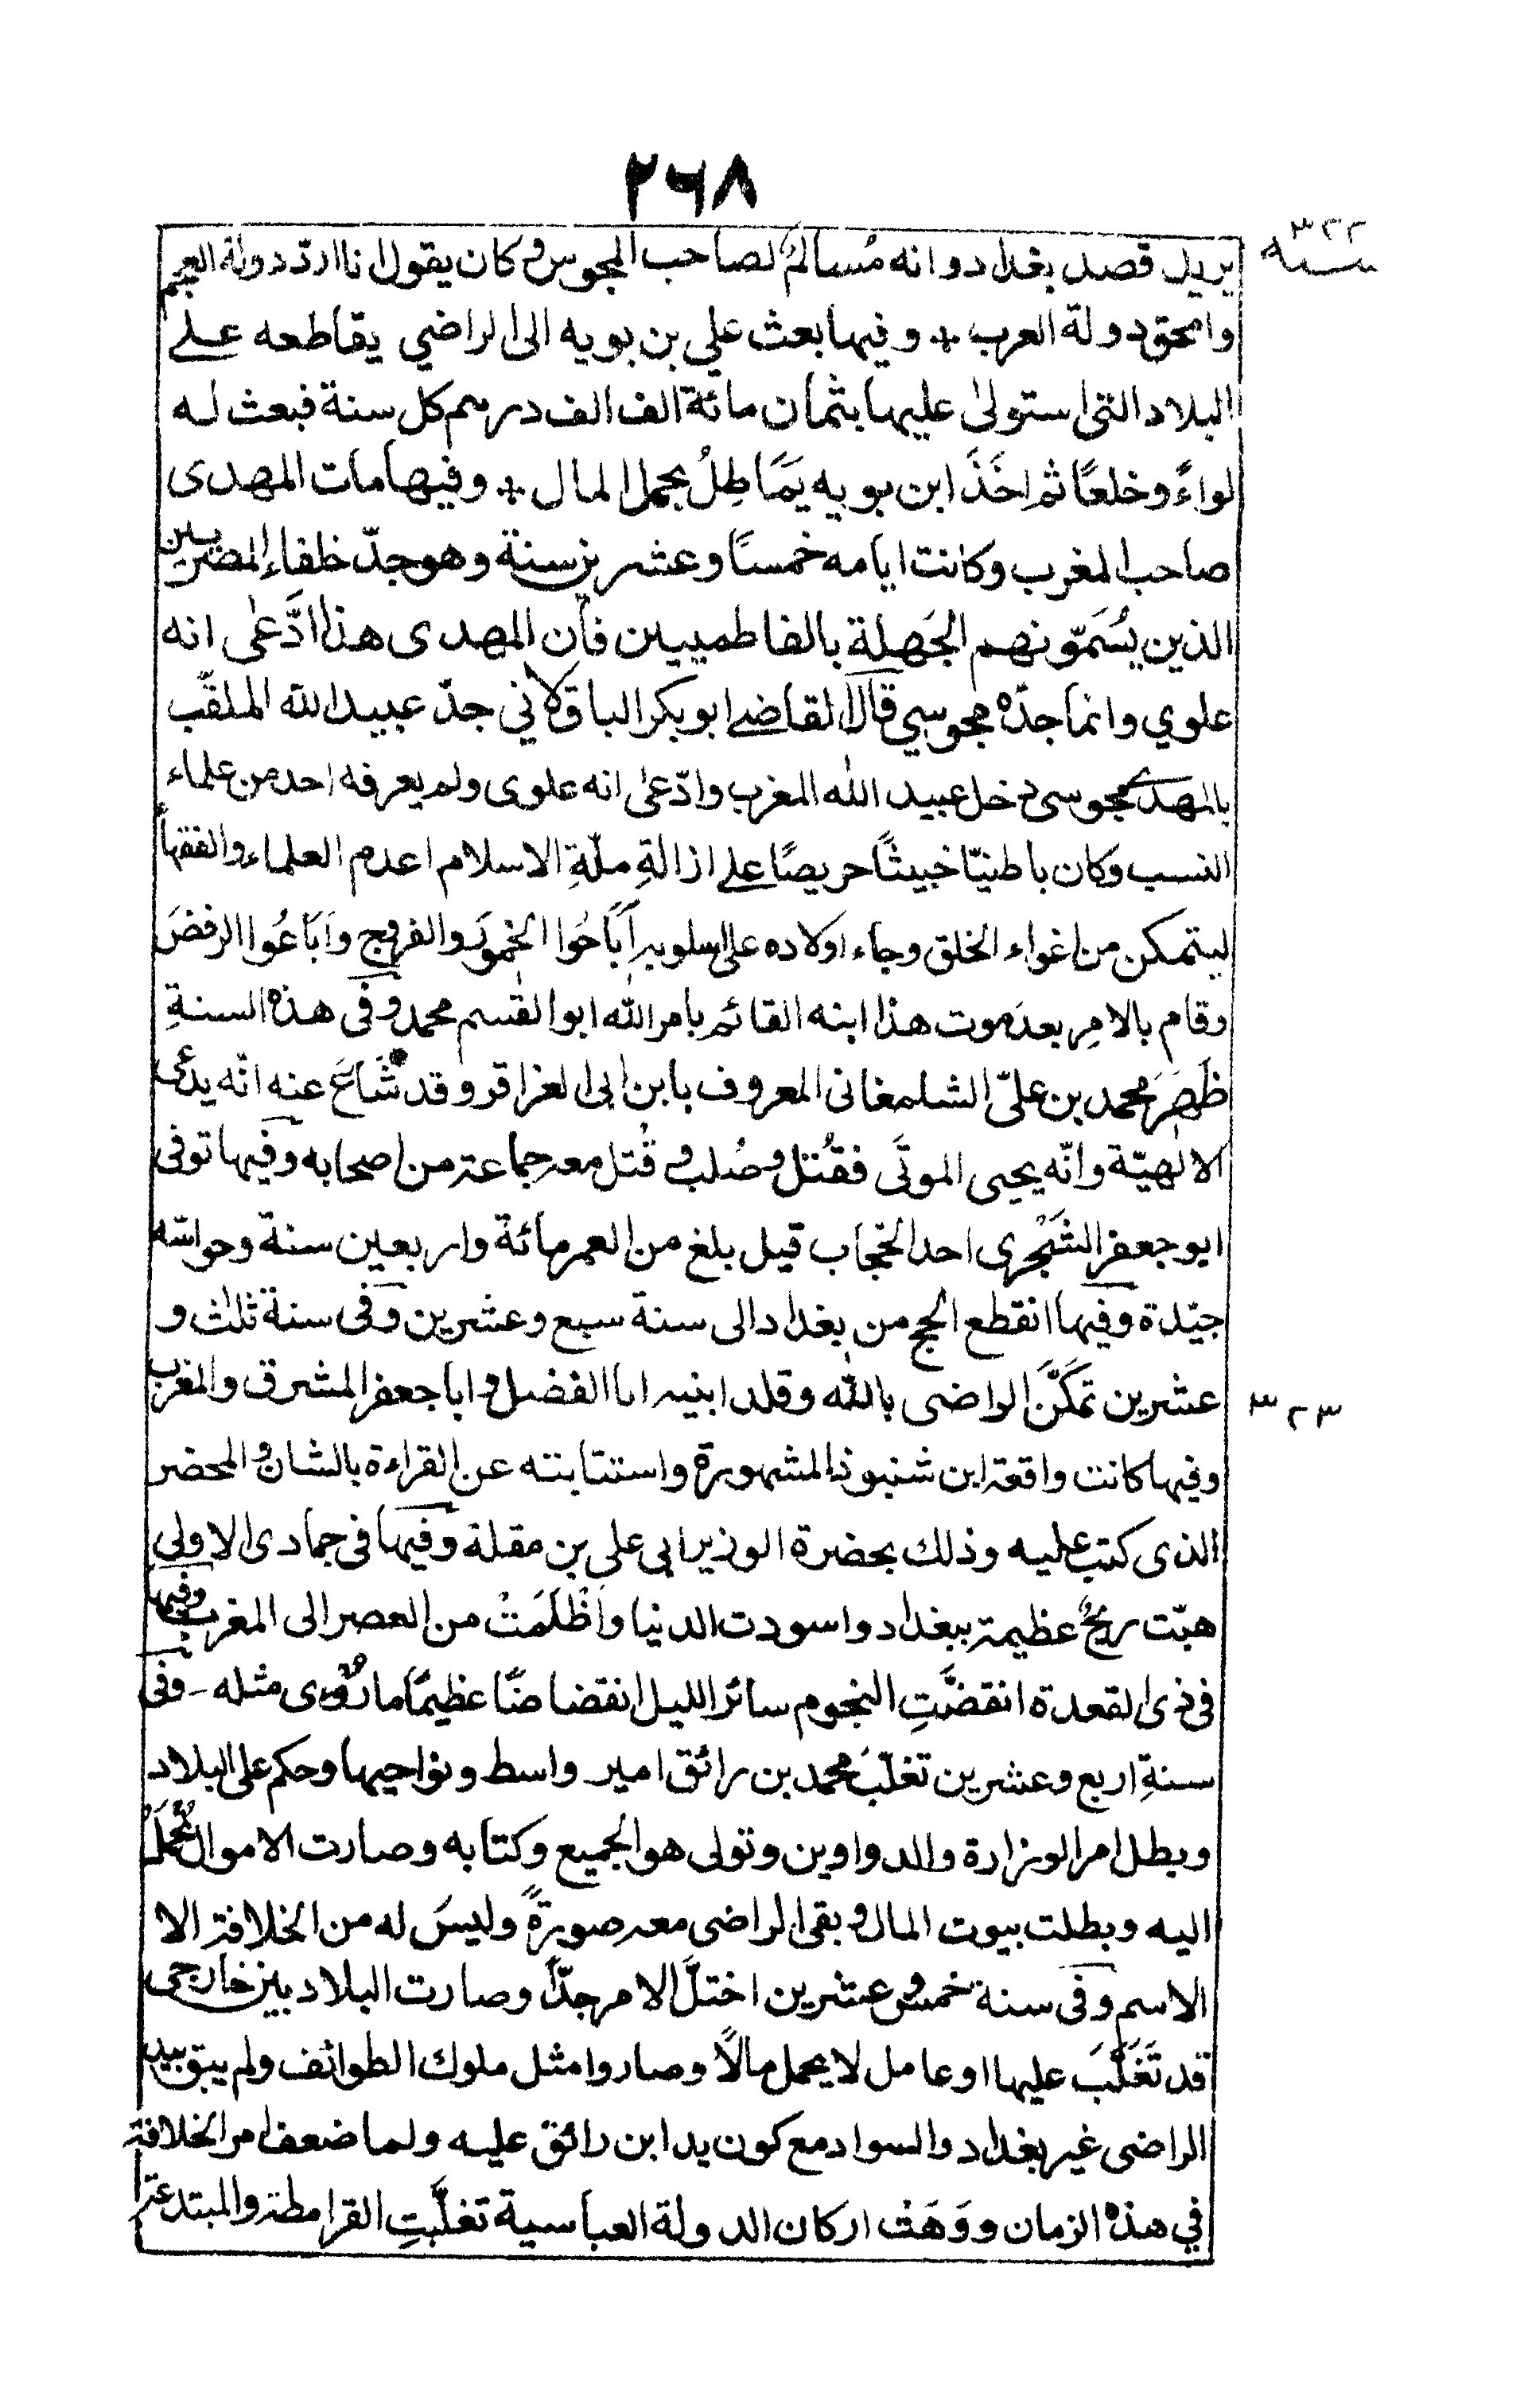 ٢٦٨
سنة ٣٢٢
يريد قصد بغداد وانه مُسالمٌ لصاحب المجوس وكان يقول انا اردّ دولة العجم
وامحق دولة العرب + وفيها بعث علي بن بويه الى الراضي يقاطعه على
البلاد التى استولىٰ عليها بثمان مائة الف الف درهم كل سنة فبعث له
لواءً وخلعًا ثم اخَذَ ابن بويه يَمَاطِلُ بحمل المال + وفيها مات المهدى
صاحب المغرب وكانت ايامه خمسًا وعشرين سنة وهو جدّ خلفاء المصريين
الذين يُسَمّونهم الجَهلة بالفاطميين فان المهدى هذا ادَّعى انه
علوي وانما جدّه مجوسي قال القاضے ابو بكر الباقلاني جدّ عبيد الله الملقّب
بالمهدے مجوسى دخل عبيد الله المغرب وادّعىٰ انه علوى ولم يعرفه احد من علماء
النسب وكان باطنيّا خبيثًا حريصًا علے ازالةِ ملّةِ الاسلام اعدم العلماء والفقهاء
ليتمكن من اغواء الخلق وجاء اولاده على اسلوبه اَبَاحُوا الخمورَ والفروج واَبَاعُوا الرفضَ
وقام بالامرِ بعد موت هذا ابنه القائم بامر الله ابو القٰسم محمد وفى هذه السنةِ
ظَهرَ محمد بن علىّ الشلمغانى المعروف بابن ابى العزاقر وقد شَاعَ عنه انّه يدعى
الالٰهيّة وانّه يحيى الموتَى فقُتل وصُلب و قُتل معه جماعة من اصحابه وفيها توفى
ابو جعفر الشَجْرى احد الحُجاب قيل بلغ من العمر مائة واربعين سنة وحواسّه
جيّدة وفيها انقطع الحج من بغداد الى سنة سبع وعشرين وفى سنة ثلٰث و
عشرين تمكَّنَ الراضى بالله وقلد ابنيه ابا الفضل و ابا جعفر المشرق والمغرب
٣٢٣
وفيها كانت واقعة ابن شنبوذ المشهورة واستتابته عن القراءة بالشاذ و المحضر
الذى كتب عليه وذلك بحضرة الوزير ابى على بن مقلة وفيها فى جمادى الاولى
هبّت ريحٌ عظيمة ببغداد واسودت الدنيا واَظْلَمَتْ من العصر الى المغرب وفيها
فى ذى القعدة انقضَّتِ النجوم سائر الليل انقضاضًا عظيمًا ما رُؤى مثله - وفى
سنةِ اربع وعشرين تغلّبَ محمد بن رائق امير واسط ونواحيها وحكم على البلاد
وبطل امر الوزارة والدواوين وتولى هو الجميع وكتابه وصارت الاموال تُحمَلُ
اليه وبطلت بيوت المال و بقى الراضى معه صورةً وليسَ له من الخلافة الا
الاسم وفى سنة خمس و عشرين اختلَّ الامر جدّاً وصارت البلاد بين خارجى
قد تَغَلَّبَ عليها او عامل لا يحمل مالًا وصاروا مثل ملوك الطوائف ولم يبق بيد
الراضى غير بغداد والسواد مع كون يد ابن رائق عليه ولما ضعف امر الخلافة
في هذه الزمان ووَهَتْ اركان الدولة العباسية تغلَّبتِ القرامطة والمبتدعة